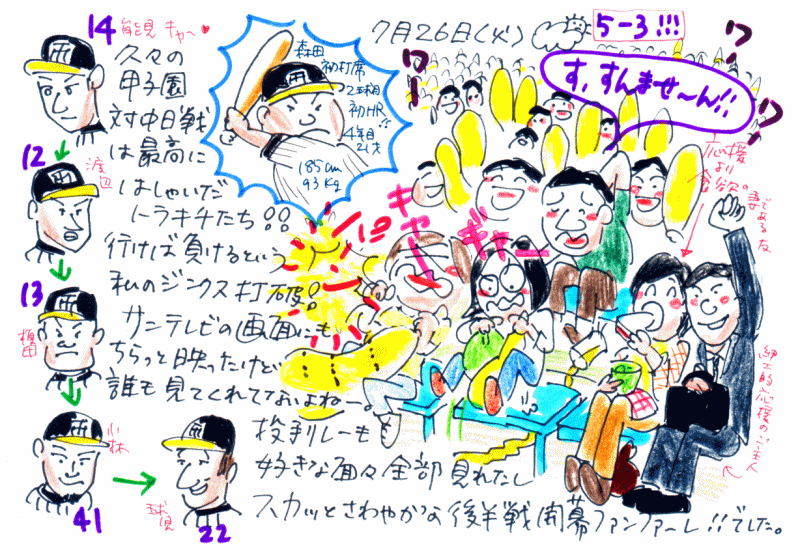 7月26日(火)
5-3!!!
14
能見 キャー♥
12
渡辺
13
榎田
41
小林
22
球児
久々の
甲子園
対中日戦
は最高に
はしゃいだ
トラキチたち!!
行けば負けるという
私のジンクス打破!
サンテレビの画面にも
ちらっと映ったけど
誰も見てくれてないよねー。
投手リレーも
好きな面々全部見れたし
スカッとさわやかな後半戦開幕ファンファーレ!!でした。
森田
初打席
2球目
初HR!!
4年目
21才
185cm
93kg
す、すんませ〜ん!!
ワー
ワー
ワー
キャー
ギャー
応援
より
食欲の
妻である友
紳士的応援のご主人